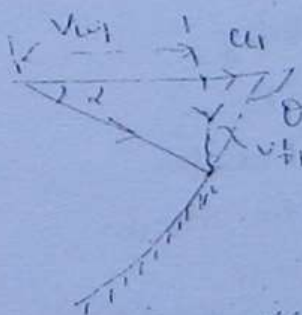 Vw1
u1
α θ
Vf1